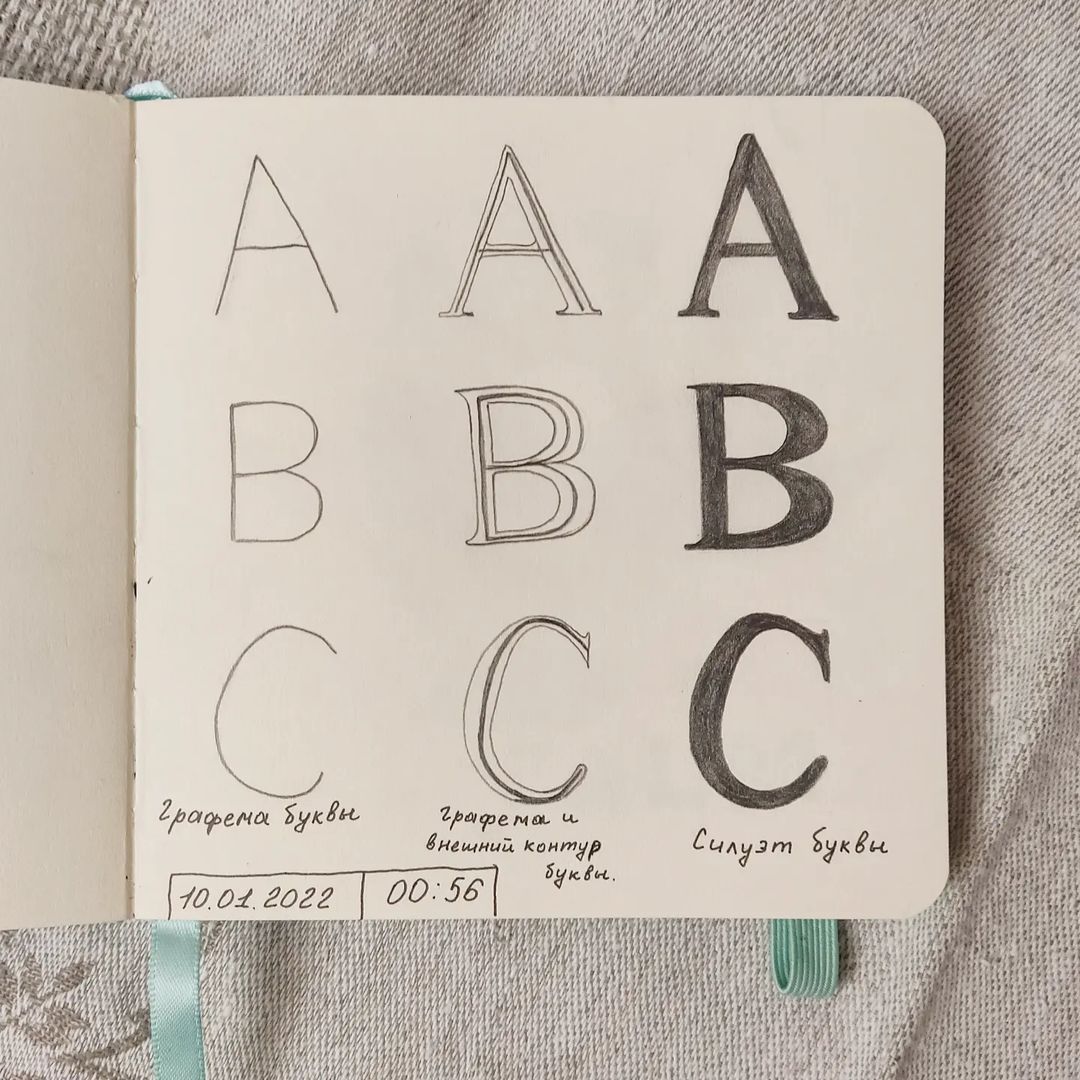 A A A
B B B
C C C
Графема буквы
Графема и
внешний контур
буквы.
Силуэт буквы
10.01.2022 00:56